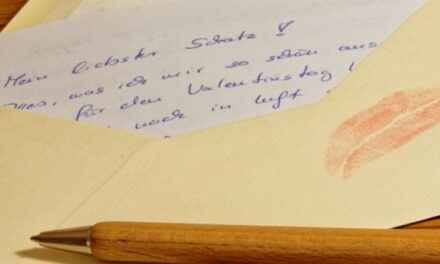 Mein liebster Schatz
Alles, was ich mir so schön aus
für den Valentinstag
noch in